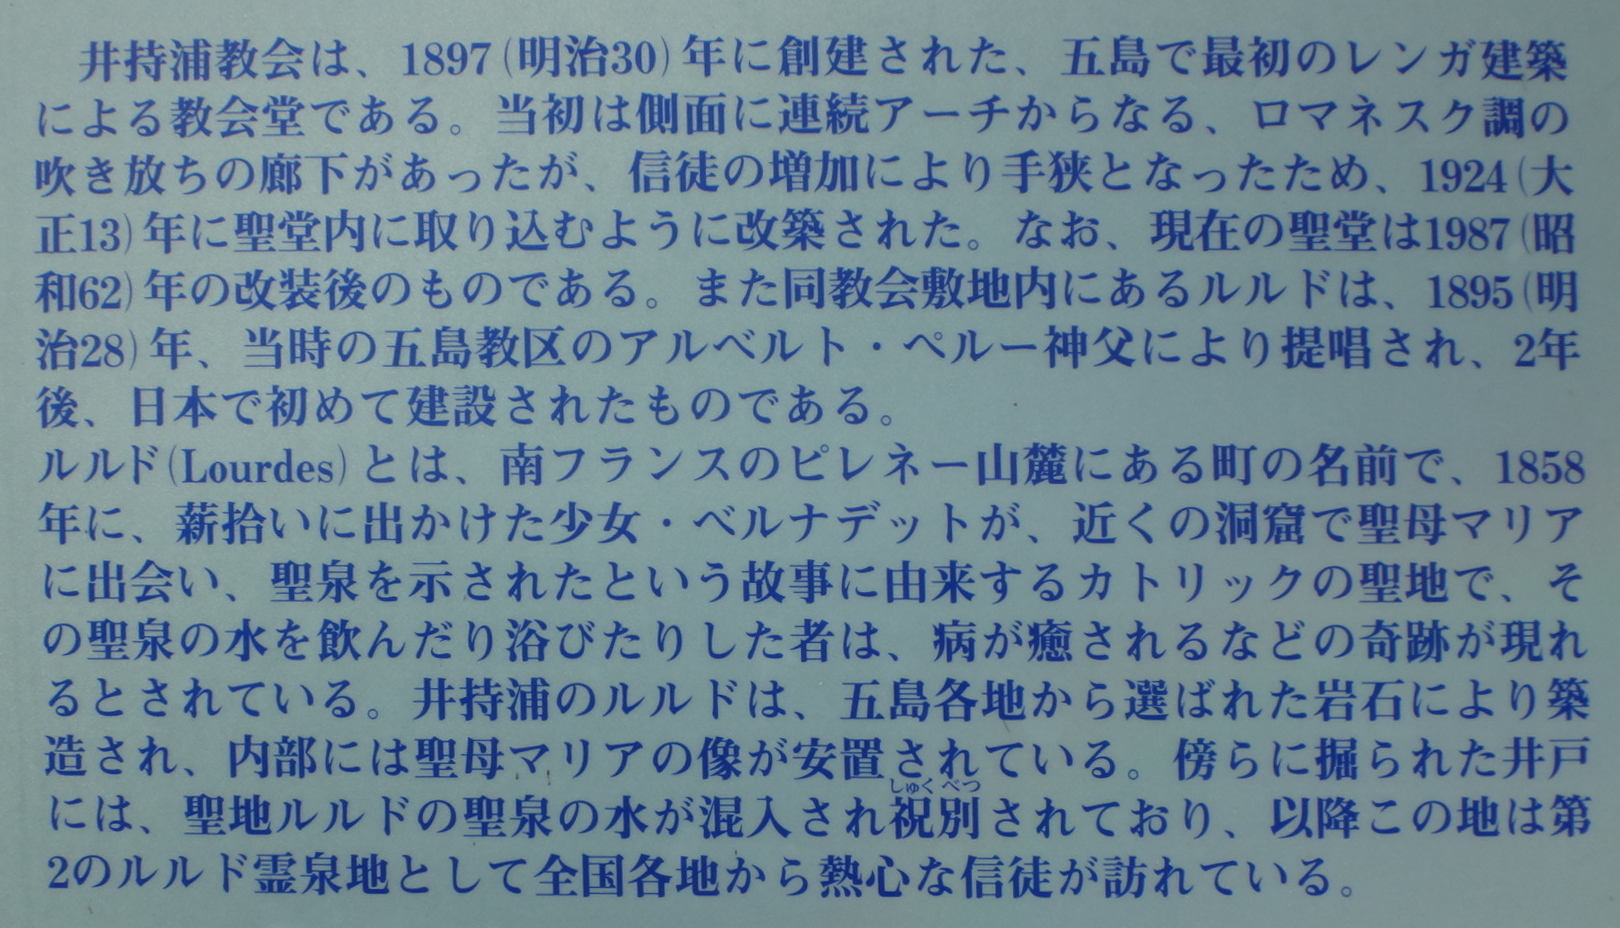 井持浦教会は、1897(明治30)年に創建された、五島で最初のレンガ建築
による教会堂である。当初は側面に連続アーチからなる、ロマネスク調の
吹き放ちの廊下があったが、信徒の増加により手狭となったため、1924(大
正13)年に聖堂内に取り込むように改築された。なお、現在の聖堂は1987(昭
和62)年の改装後のものである。また同教会敷地内にあるルルドは、1895(明
治28)年、当時の五島教区のアルベルト・ペルー神父により提唱され、2年
後、日本で初めて建設されたものである。
ルルド(Lourdes)とは、南フランスのピレネー山麓にある町の名前で、1858
年に、薪拾いに出かけた少女・ベルナデットが、近くの洞窟で聖母マリア
に出会い、聖泉を示されたという故事に由来するカトリックの聖地で、そ
の聖泉の水を飲んだり浴びたりした者は、病が癒されるなどの奇跡が現れ
るとされている。井持浦のルルドは、五島各地から選ばれた岩石により築
造され、内部には聖母マリアの像が安置されている。傍らに掘られた井戸
しゅくべつ
には、聖地ルルドの聖泉の水が混入され祝別されており、以降この地は第
2のルルド霊泉地として全国各地から熱心な信徒が訪れている。